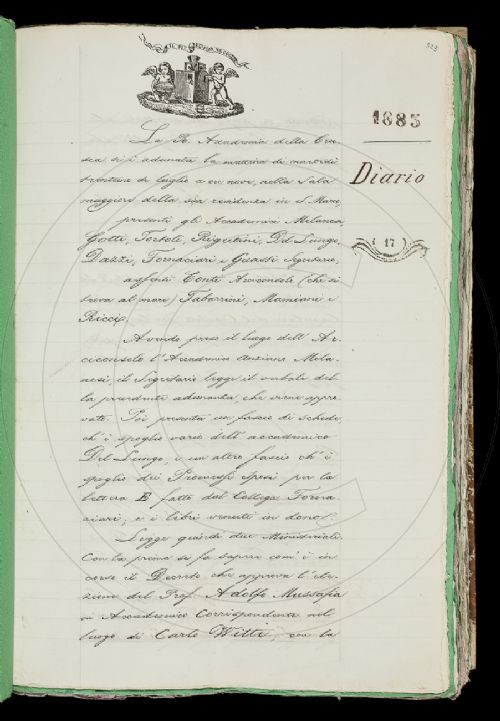 323
1883
Diario
(17)
La R. Accademia della Cru-
sca si è adunata la mattina di martedì
trentuno di luglio a ore nove, nella Sala
maggiore della sua residenza in S. Marco,
presenti gli Accademici Milanesi,
Gotti, Tortoli, Rigutini, Del Lungo,
Dazzi, Fornaciari e Guasti Segretario,
assenti Conti Arciconsolo (che si
trova al mare) Tabarrini, Mamiani e
Ricci.
Avendo preso il luogo dell'Ar-
ciconsolo l'Accademico anziano Mila-
nesi, il Segretario legge il verbale del-
la precedente adunanza, che viene appro-
vato. Poi presenta un fascio di schede,
ch'è spoglio vario dell'accademico
Del Lungo, e un altro fascio ch'è
spoglio dei Promessi Sposi per la
lettera E fatto dal Collega Forna-
ciari, e i libri venuti in dono.
Legge quindi due Ministeriali.
Con la prima si fa sapere com'è in
corso il Decreto che approva l'ele-
zione del Prof. Adolfo Mussafia
in Accademico Corrispondente nel
luogo di Carlo Witte, con la